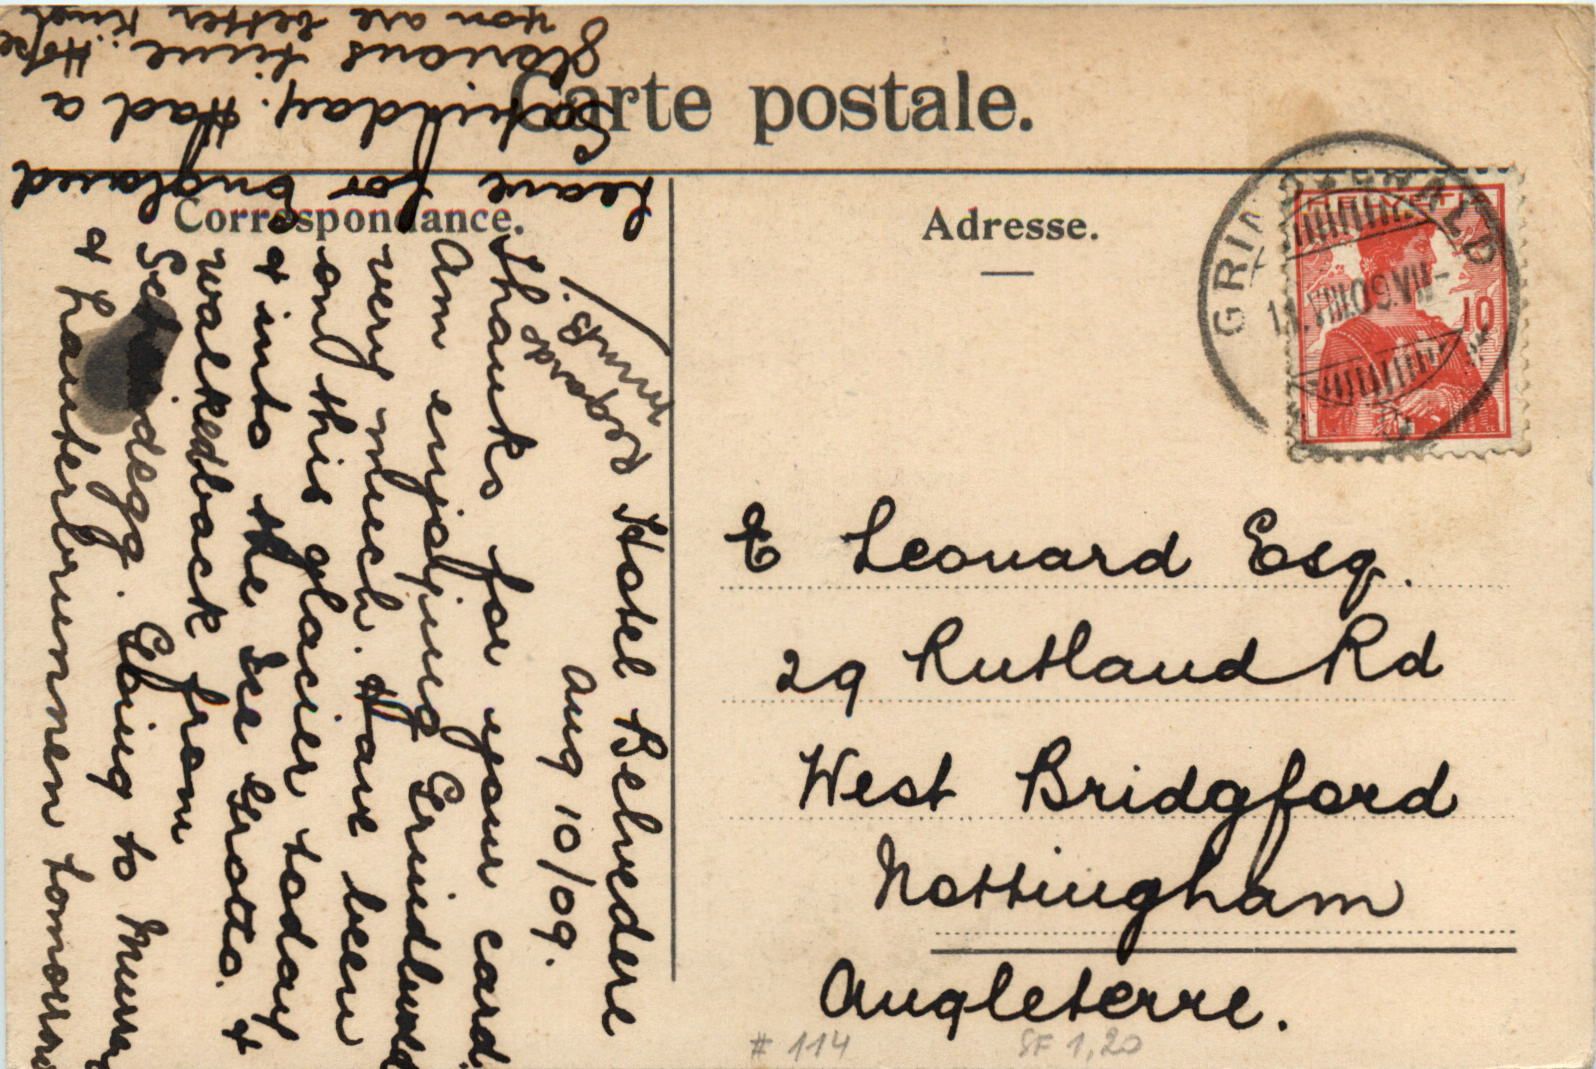 Carte postale.
Correspondance.
Adresse.
Hotel Belvedere
Aug 10/09.
Thanks for your card.
Am enjoying Grindlwald
very much. Have been
on this glacier today
& into the Ice Grotto. &
walked back from
Scheidegg. Going to Murren
& Lauterbrunnen tomorrow
Leave for England
Saturday. Had a
glorious time. Hope
you are better
Rgards
GRINDELWALD
11.VIII.09.VII-
HELVETIA
10
E Leonard Esq.
29 Rutland Rd
West Bridgford
Nottingham
Angleterre.
# 114
SF 1,20